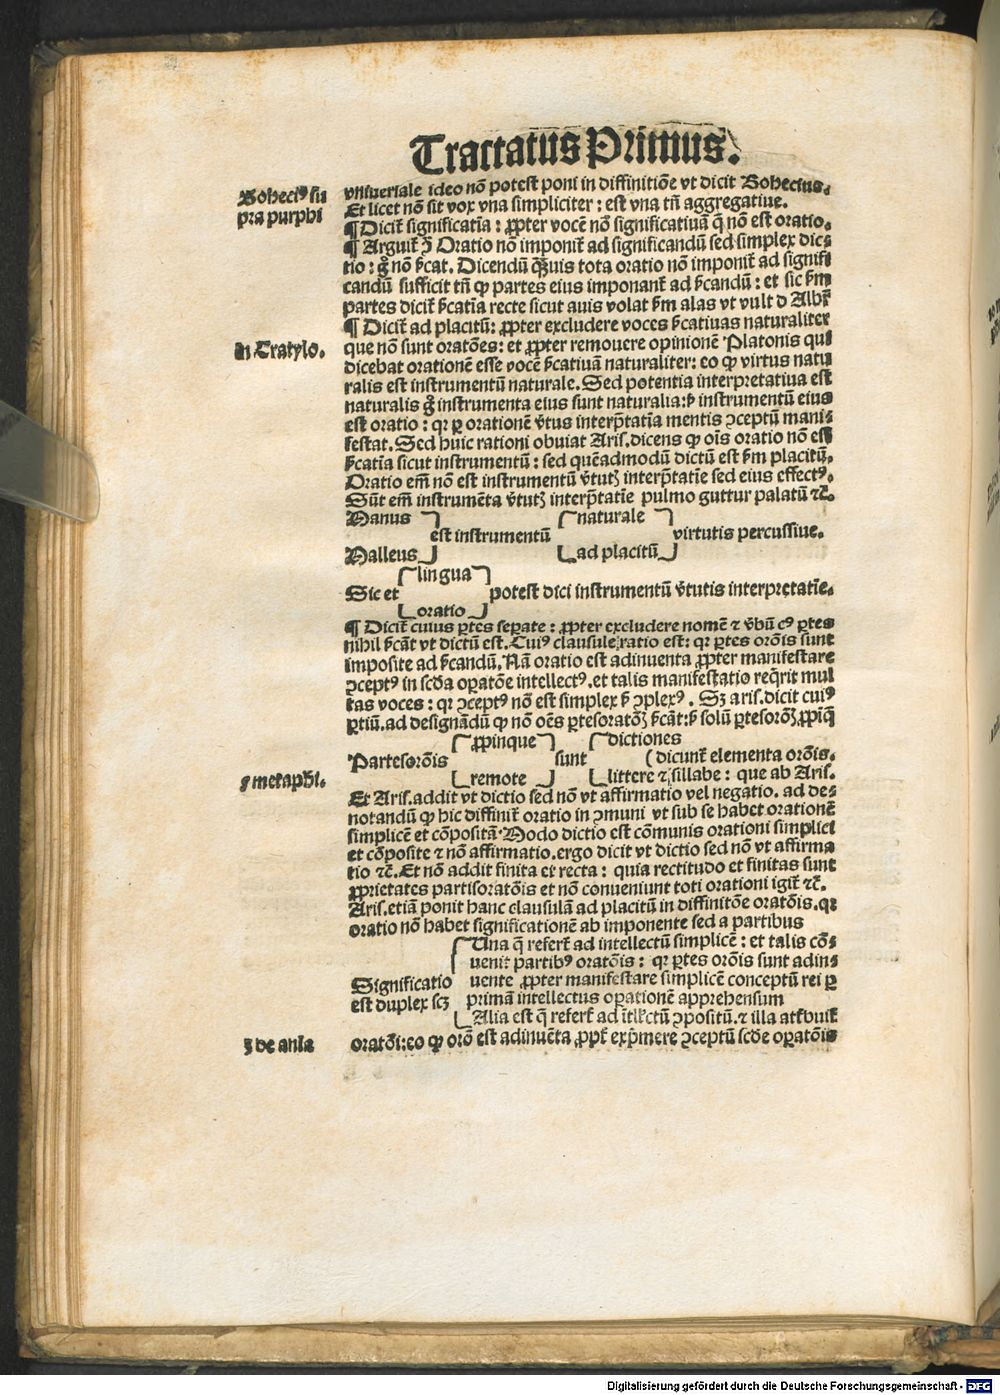 Tractatus Primus.
Boheciꝰ su
pra purphi
vniuersale ideo nō potest poni in diffinitiōe vt dicit Bohecius.
Et licet nō sit vox vna simpliciter : est vna tñ aggregatiue.
¶ Dicit̃ significatĩa : ꝓpter vocē nō significatiuā q̃ nō est oratio.
¶ Arguit̃ ꝯ̃ Oratio nō imponit̃ ad significandū sed simplex dic⸗
tio : g̊ nō s̃cat. Dicendū qȝuis tota oratio nō imponit̃ ad signifi
candū sufficit tñ ꝙ partes eius imponant̃ ad s̃candū : et sic s̃m
partes dicit̃ s̃catĩa recte sicut auis volat s̃m alas vt vult d Alb̃t
¶ Dicit̃ ad placitū : ꝓpter excludere voces s̃catiuas naturaliter
in Cratylo.
que nō sunt oratōes : et ꝓpter remouere opinionē Platonis qui
dicebat orationē esse vocē s̃catiuā naturaliter : eo ꝙ virtus natu
ralis est instrumentū naturale. Sed potentia interpretatiua est
naturalis g̊ instrumenta eius sunt naturalia : s̃ instrumentū eius
est oratio : qꝛ ꝑ orationē v̾tus interp̃tatĩa mentis ꝯceptū mani⸗
festat. Sed huic rationi obuiat Aris. dicens ꝙ oĩs oratio nō est
s̃catĩa sicut instrumentū : sed quēadmodū dictū est s̃m placitū.
Oratio em̃ nō est instrumentū v̾tutꝭ interp̃tatĩe sed eius effectꝰ.
Sūt em̃ instrumēta v̾tutꝭ interp̃tatĩe pulmo guttur palatū ⁊c̃.
Manus naturale
est instrumentū virtutis percussiue.
Malleus ad placitū
lingua
Sic et potest dici instrumentū v̾tutis interpretatĩe.
oratio
¶ Dicit̃ cuius ꝑtes seꝑate : ꝓpter excludere nomē ⁊ v̾bū cꝰ ꝑtes
nihil s̃cāt vt dictū est. Cuiꝰ clausule ratio est : qꝛ ꝑtes orōis sunt
imposite ad s̃candū, Nā oratio est adinuenta ꝓpter manifestare
ꝯceptꝰ in scd̃a oꝑatōe intellectꝰ. et talis manifestatio req̃rit mul
tas voces : qꝛ ꝯceptꝰ nō est simplex s̃ ꝯplexꝰ. Sȝ aris. dicit cuiꝰ
ꝑtiū. ad designādū ꝙ nō oēs ꝑtesoratōꝭ s̃cāt : s̃ solū ꝑtesorōꝭ ꝓpiq̃
ꝓpinque dictiones
Partesorōis sunt ( dicunt̃ elementa orōis.
9 metaphi. remote littere ⁊ sillabe : que ab Aris.
Et Aris. addit vt dictio sed nō vt affirmatio vel negatio. ad de⸗
notandū ꝙ hic diffinit̃ oratio in ꝯmuni vt sub se habet orationē
simplicē et cōpositā. Modo dictio est cōmunis orationi simplici
et cōposite ⁊ nō affirmatio. ergo dicit vt dictio sed nō vt affirma
tio ⁊c̃. Et nō addit finita et recta : quia rectitudo et finitas sunt
ꝓprietates partisoratōis et nō conueniunt toti orationi igit̃ ⁊c̃.
Aris. etiā ponit hanc clausulā ad placitū in diffinitōe oratōis. qꝛ
oratio nō habet significationē ab imponente sed a partibus
Una q̃ refert̃ ad intellectū simplicē : et talis cō⸗
uenit partibꝰ oratōis : qꝛ ꝑtes orōis sunt adin⸗
Significatio uente ꝓpter manifestare simplicē conceptū rei ꝑ
est duplex scȝ primā intellectus oꝑationē apprehensum
Alia est q̃ refert̃ ad ĩtl̃ctū ꝯpositū. ⁊ illa atr̃buit̃
3 de aĩa
oratōi : eo ꝙ orō est adinuēta ꝓpt̃ exp̃mere ꝯceptū scd̃e oꝑatōis
Digitalisierung gefördert durch die Deutsche Forschungsgemeinschaft - DFG